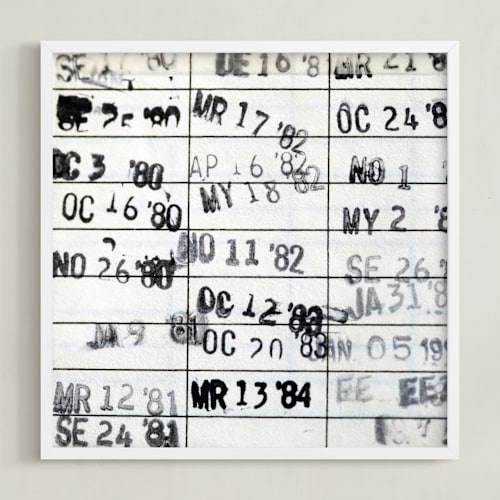 SE 17 '80
SE 25 '80
OC 3 '80
OC 16 '80
NO 26 '80
JA 9 '81
MR 12 '81
SE 24 '81
DE 16 '8
MR 17 '82
AP 16 '82
MY 18 '82
NO 11 '82
OC 12 '83
OC 20 '83
MR 13 '84
MR 21 '8
OC 24 '8
NO 1
MY 2 '8
SE 26 '
JA 31 '8
JAN 05 199